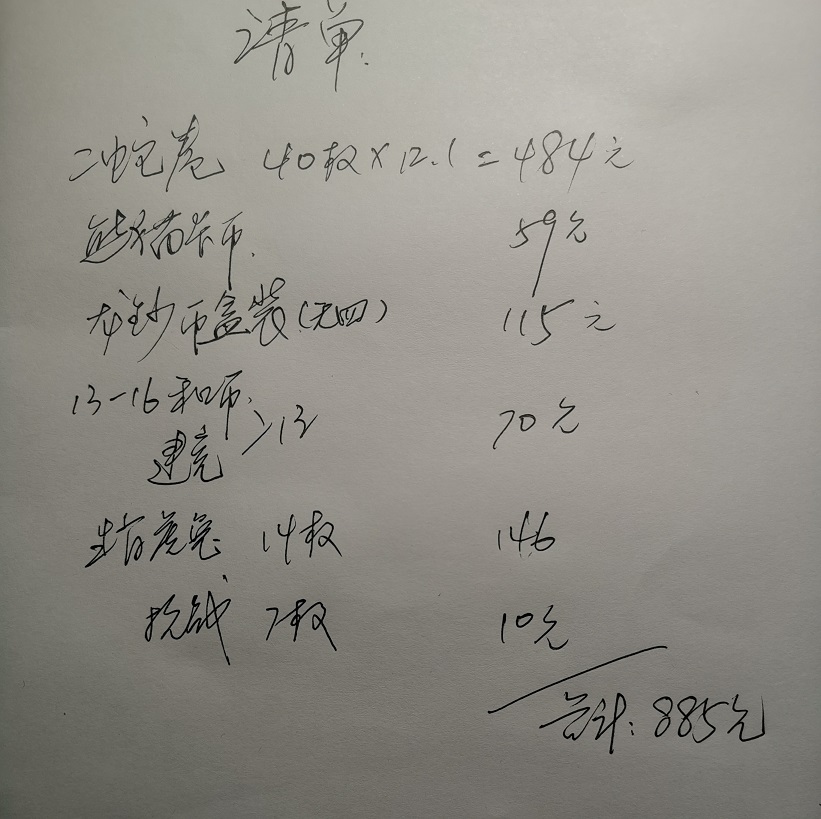 清单.
二蛇卷 40枚×12.1=484元
熊猫卡币. 59元
龙钞币盒装(无四) 115元
13-16和币. >13 70元
建党
生肖虎兔 14枚 146
抗战 7枚 10元
合计: 885元